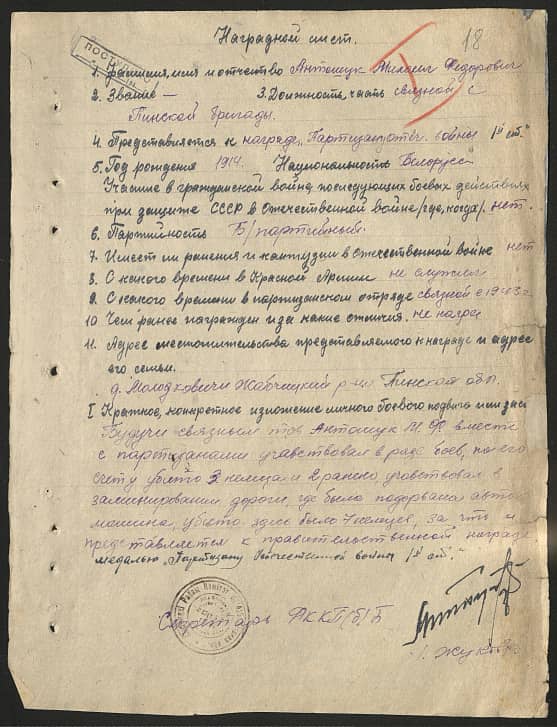 18
Наградной лист.
1. Фамилия, имя и отчество Антомук Михаил Федорович
2. Звание — 3. Должность, часть связной с
Пинской бригады.
4. Представляется к награде „Партизану отеч. войны II ст."
5. Год рождения 1914. Национальность Белорусс
Участие в гражданской войне последующих боевых действиях
при защите СССР в отечественной войне /где, когда/. нет.
6. Партийность Б/партийный.
7. Имеет ли ранения и контузии в отечественной войне нет
8. С какого времени в Красной Армии не служил
9. С какого времени в партизанском отряде связной с 1943 г
10 Чем ранее награжден и за какие отличия. не награ
11. Адрес местожительства представляемого к награде и адрес
его семьи.
д. Молодковичи Жабчицкий р-н Пинской обл.
I Краткое, конкретное изложение личного боевого подвига или зас
Будучи связным тов Антомук М. Ф вместе
с партизанами учавствовал в ряде боев, по его
счету убито 2 немца и 2 ранено, учавствовал в
заминировании дороги, где была подорвана авто
машина, убито здесь было 7 немцев, за что и
представляется к правительственной награде
медалью „Партизану Отечественной войны II ст."
Секретарь РККП(б)Б